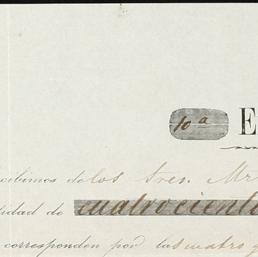 10ª E
cibimos de los Sres. Mr
tidad de cuatrociento
corresponden por las cuatro